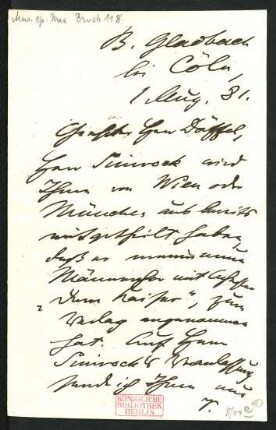 Mus. ep. Max Bruch 118
B. Gladbach
bei Cöln,
1 Aug. 81.
Geehrter Herr Dörffel,
Herr Simrock wird
Ihnen von Wien oder
München aus bereits
mitgetheilt haben,
daß er meinen
Männerchor mit Orchester
"Dem Kaiser", zum
Verlag angenommen
hat. Auf Herrn
Simrock's Veranlassung
sende ich Ihnen nun
KÖNIGLICHE
BIBLIOTHEK
BERLIN